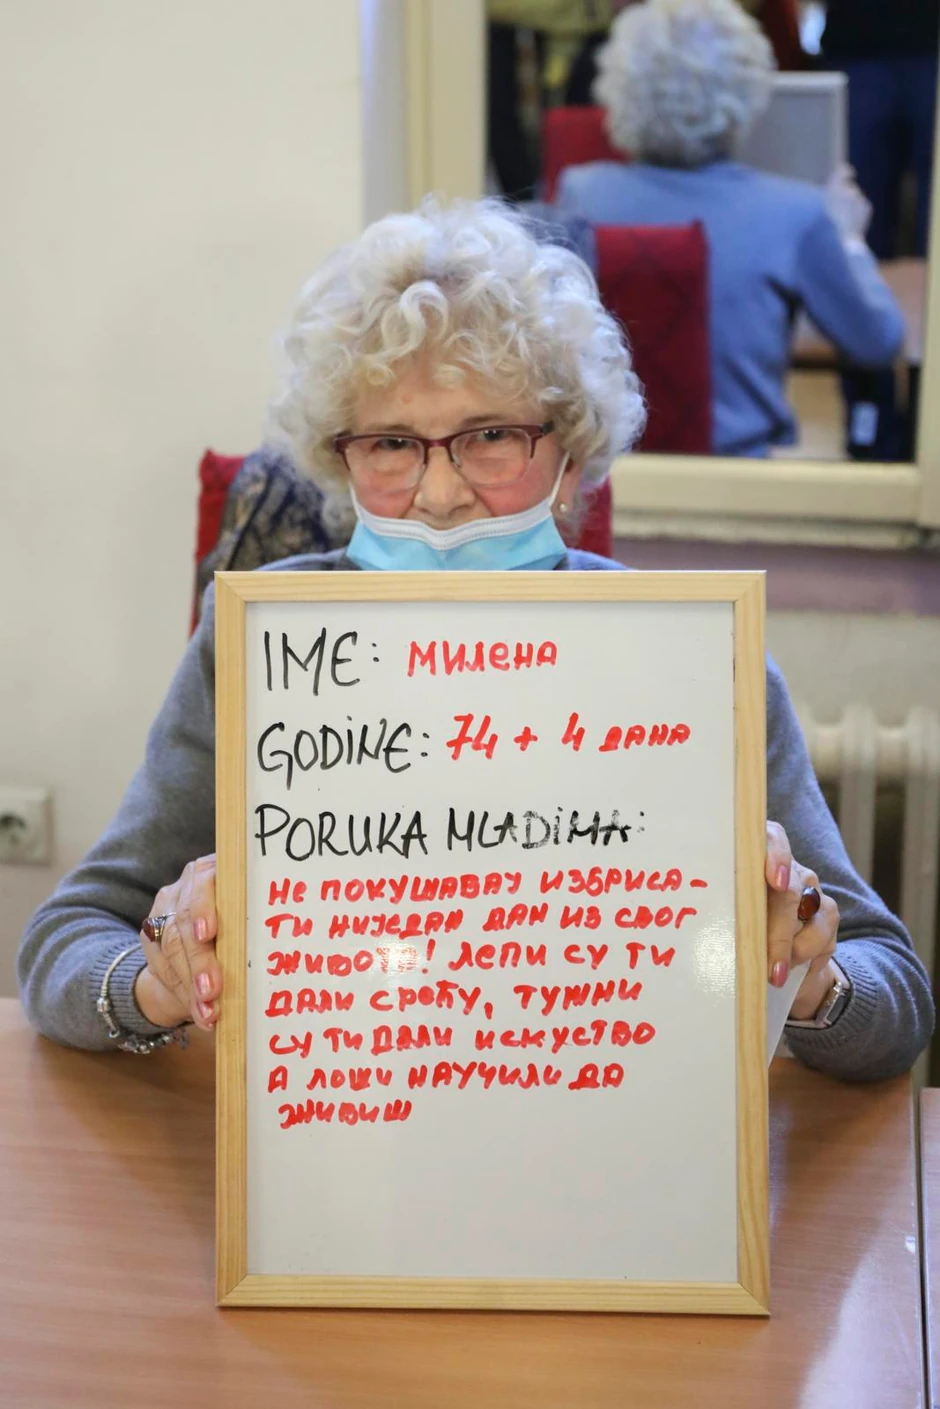 IME: МИЛЕНА
GODINE: 74 + 4 ДАНА
PORUKA MLADIMA:
НЕ ПОКУШАВАЈ ИЗБРИСА-
ТИ НИЈЕДАН ДАН ИЗ СВОГ
ЖИВОТА! ЛЕПИ СУ ТИ
ДАЛИ СРЕЋУ, ТУЖНИ
СУ ТИ ДАЛИ ИСКУСТВО
А ЛОШИ НАУЧИЛИ ДА
ЖИВИШ